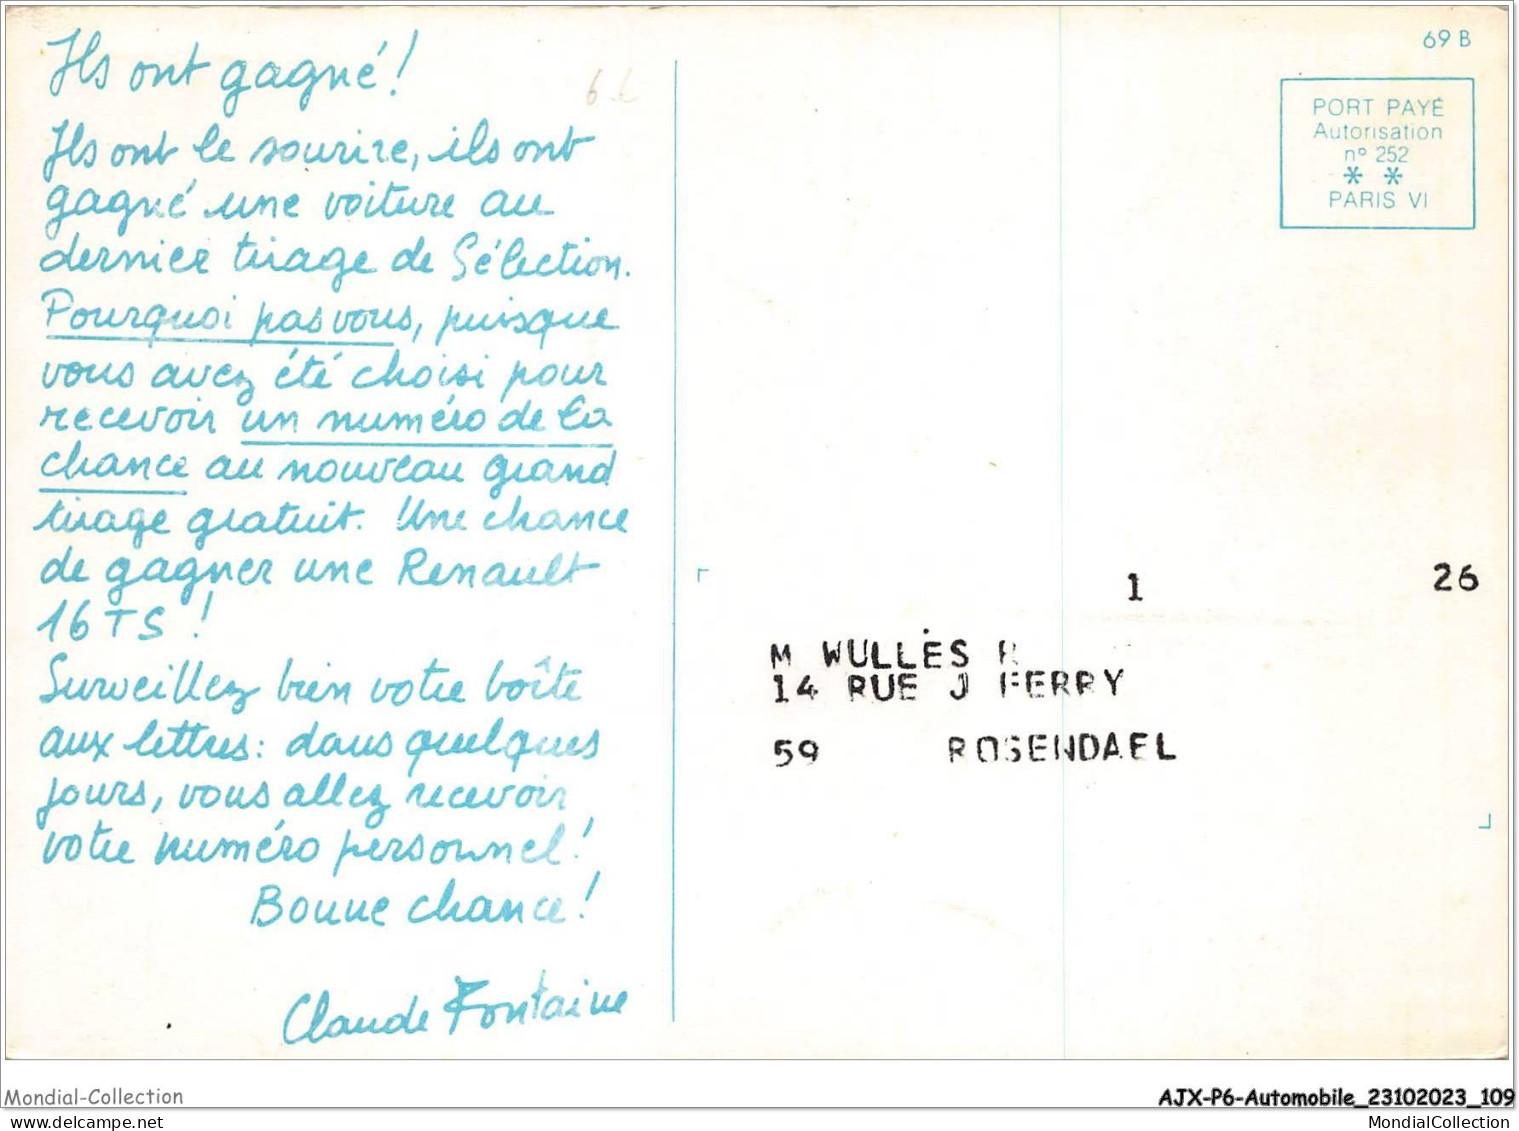 Ils ont gagné !
Ils ont le sourire, ils ont
gagné une voiture au
dernier tirage de Sélection.
Pourquoi pas vous, puisque
vous avez été choisi pour
recevoir un numéro de la
chance au nouveau grand
tirage gratuit. Une chance
de gagner une Renault
16 TS !
Surveillez bien votre boîte
aux lettres : dans quelques
jours, vous allez recevoir
votre numéro personnel !
Bonne chance !
Claude Fontaine
69 B
PORT PAYÉ
Autorisation
n° 252
* *
PARIS VI
1 26
M WULLES
14 RUE J FERRY
59 ROSENDAEL
Mondial-Collection
AJX-P6-Automobile_23102023_109
MondialCollection